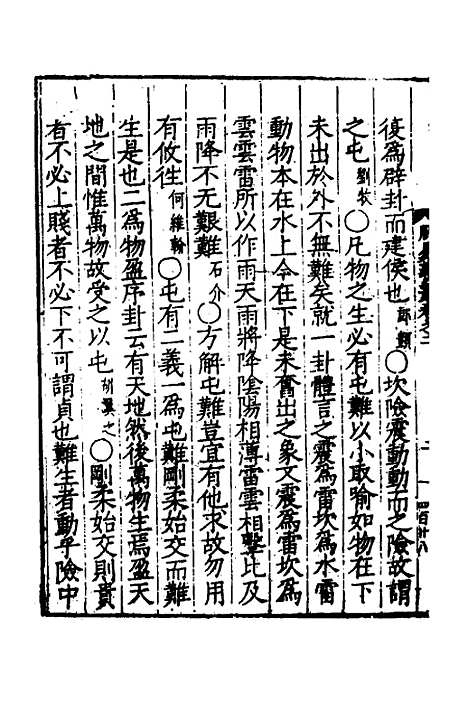 復爲辟卦而建侯也 〇坎險震動動而之險故謂
之屯 劉牧 〇凡物之生必有屯難以小取喻如物在下
未出於外不無難矣就一卦體言之震爲雷坎爲水雷
動物本在水上今在下是未奮出之象又震爲雷坎爲
雲雲雷所以作雨天雨將降陰陽相薄雷雲相擊比及
雨降不无艱難 石介 〇方解屯難豈宜有他求故勿用
有攸往 何維翰 〇屯有二義一爲屯難剛柔始交而難
生是也二爲物盈序卦云有天地然後萬物生焉盈天
地之間惟萬物故受之以屯 胡翼之 〇剛柔始交則貴
者不必上賤者不必下不可謂貞也難生者動乎險中